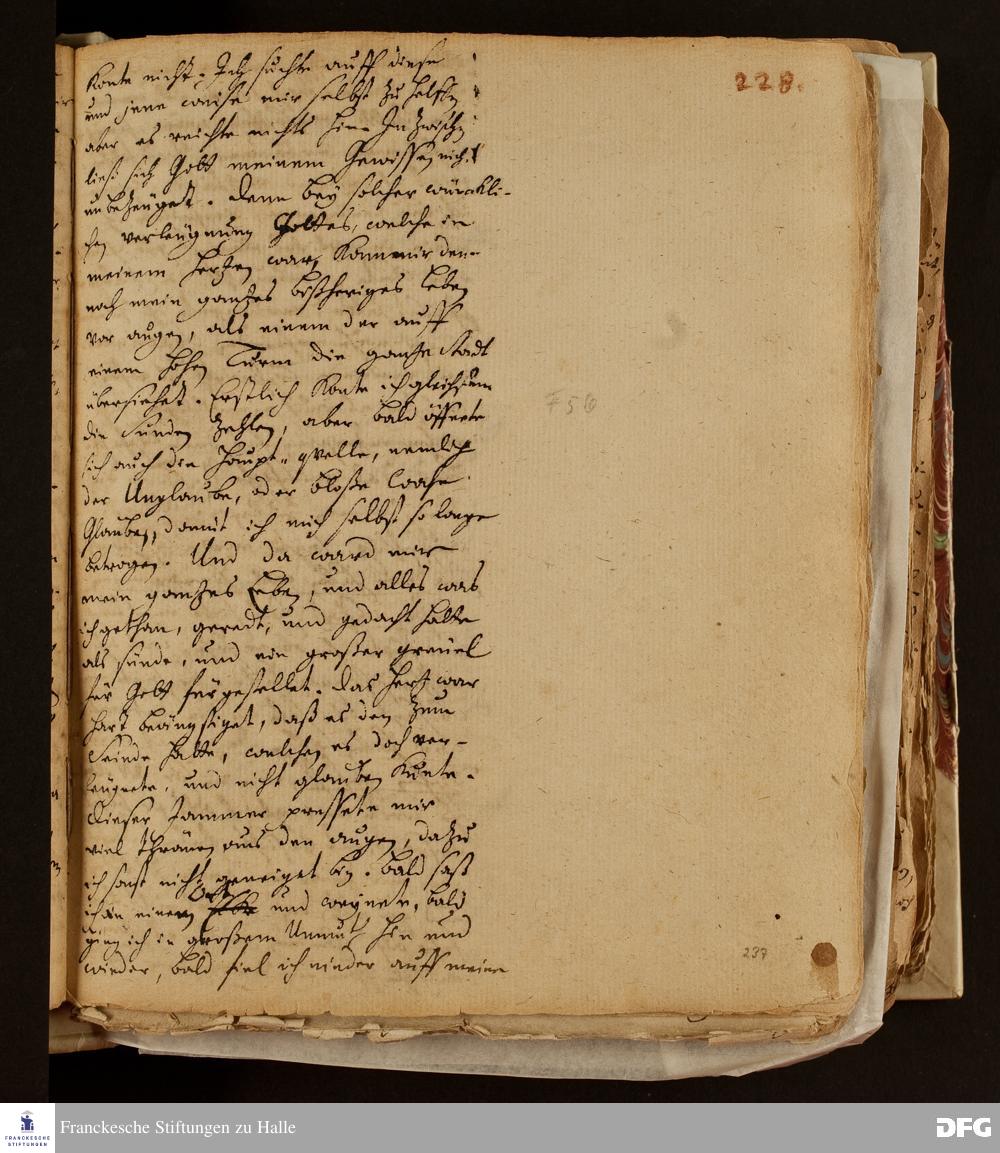 228.
konte nicht. Ich suchte auff diese
und jene weise mir selbst zu helffen
aber es reichte nichts hin. Inzwischen
ließ sich Gott meinem Gewissen nicht
unbezeuget. Denn bey solcher würckli-
chen verleugnung Gottes, welche in
meinem Hertzen war, kam mir den-
noch mein gantzes bißheriges Leben
vor augen, als einem der auff
einem hohen Turm die gantze Stadt
übersiehet. Erstlich konte ich gleichsam
die Sünden zehlen, aber bald öffnete
sich auch die Haupt-quelle, nemlich
der Unglaube, oder bloße Wahn-
Glaube, damit ich mich selbst so lange
betrogen. Und da ward mir
mein gantzes Leben, und alles was
ich gethan, geredt, und gedacht hatte
als sünde, und ein großer greuel
für Gott fürgestellet. Das Hertz war
hart beängstiget, daß es den zum
Feinde hatte, welchen es doch ver-
leugnete, und nicht glauben kunte.
Dieser Jammer pressete mir
viel thränen aus den augen, dazu
ich sonst nicht geneiget bin. Bald saß
ich an einem Ort und weynete, bald
ging ich in großem Unmuth hin und
wieder, bald fiel ich nieder auff meine
F56
237
FRANCKESCHE
STIFTUNGEN
Franckesche Stiftungen zu Halle
DFG